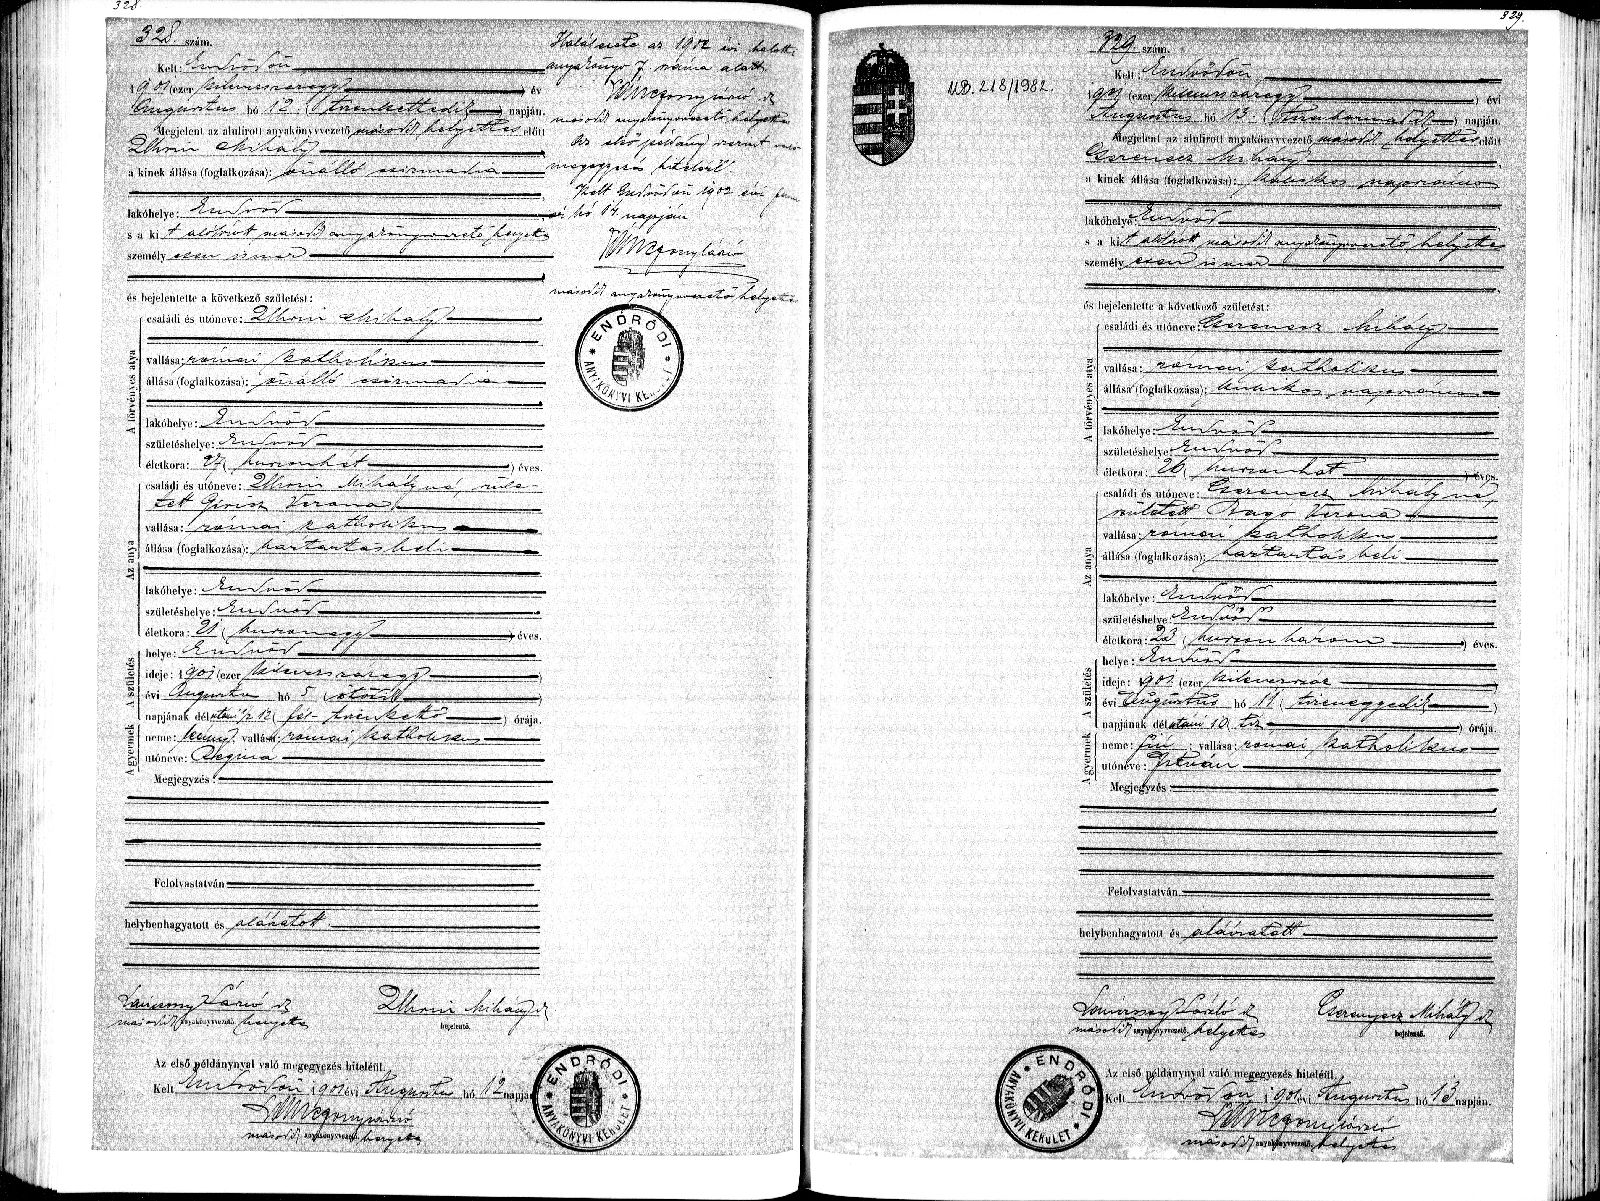 328
328. szám.
Kelt: Endrődön
1901 (ezer kilencszázegy) év
Augusztus hó 12 (tizenkettedik) napján.
Megjelent az alulirott anyakönyvvezető másod helyettes előtt
Mihály
a kinek állása (foglalkozása): önálló csizmadia
lakóhelye: Endrőd
s a kit alólirott másod anyakönyvvezető helyettes
személyesen ismer
és bejelentette a következő születést:
A törvényes atya
családi és utóneve: Mihály
vallása: római katholikus
állása (foglalkozása): önálló csizmadia
lakóhelye: Endrőd
születéshelye: Endrőd
életkora: 27 (huszonhét) éves.
Az anya
családi és utóneve: Mihályné, szüle-
tett Verona
vallása: római katholikus
állása (foglalkozása): háztartásbeli
lakóhelye: Endrőd
születéshelye: Endrőd
életkora: 21 (huszonegy) éves.
A születés
helye: Endrőd
ideje: 1901 (ezer kilencszázegy)
évi Augusztus hó 5 (ötödik)
napjának délutáni ½ 12 (fél-tizenkettő) órája.
A gyermek
neme: leány; vallása: római katholikus
utóneve: Regina
Megjegyzés:
Felolvastatván
helybenhagyatott és aláíratott
László
másod anyakönyvvezető helyettes
Mihály
bejelentő.
Az első példánynyal való megegyezés hiteléül.
Kelt Endrődön 1901 évi Augusztus hó 12 napján
másod anyakönyvvezető helyettes
ENDRŐDI
ANYAKÖNYVI KERÜLET
Halálesete az 1902 évi halotti
anyakönyv 7 száma alatt
másod anyakönyvvezető helyettes
Az első példány szerint való
megegyezés hiteléül.
Kelt Endrődön 1902 évi
hó 14 napján
másod anyakönyvvezető helyettes
ENDRŐDI
ANYAKÖNYVI KERÜLET
329.
UB. 218/1982.
329 szám.
Kelt: Endrődön
1901 (ezer kilencszázegy) évi
Augusztus hó 13. (tizenharmadik) napján.
Megjelent az alulirott anyakönyvvezető másod helyettes előtt
Cserenyecz Mihály
a kinek állása (foglalkozása): kubikos napszámos
lakóhelye: Endrőd
s a kit alólirott másod anyakönyvvezető helyettes
személyesen ismer
és bejelentette a következő születést:
A törvényes atya
családi és utóneve: Cserenyecz Mihály
vallása: római katholikus
állása (foglalkozása): kubikos napszámos
lakóhelye: Endrőd
születéshelye: Endrőd
életkora: 26 (huszonhat) éves.
Az anya
családi és utóneve: Cserenyecz Mihályné,
született Bagó Verona
vallása: római katholikus
állása (foglalkozása): háztartásbeli
lakóhelye: Endrőd
születéshelye: Endrőd
életkora: 23 (huszonhárom) éves.
A születés
helye: Endrőd
ideje: 1901 (ezer
évi Augusztus hó 11 (tizenegyedik)
napjának délutáni 10 (tíz) órája.
A gyermek
neme: fiú; vallása: római katholikus
utóneve: István
Megjegyzés
Felolvastatván.
helybenhagyatott és aláíratott
László
másod anyakönyvvezető. helyettes
Cserenyecz Mihály
bejelentő.
Az első példánynyal való megegyezés hiteléül.
Kelt Endrődön 1901 évi Augusztus hó 13 napján.
másod anyakönyvvezető. helyettes
ENDRŐDI
ANYAKÖNYVI KERÜLET